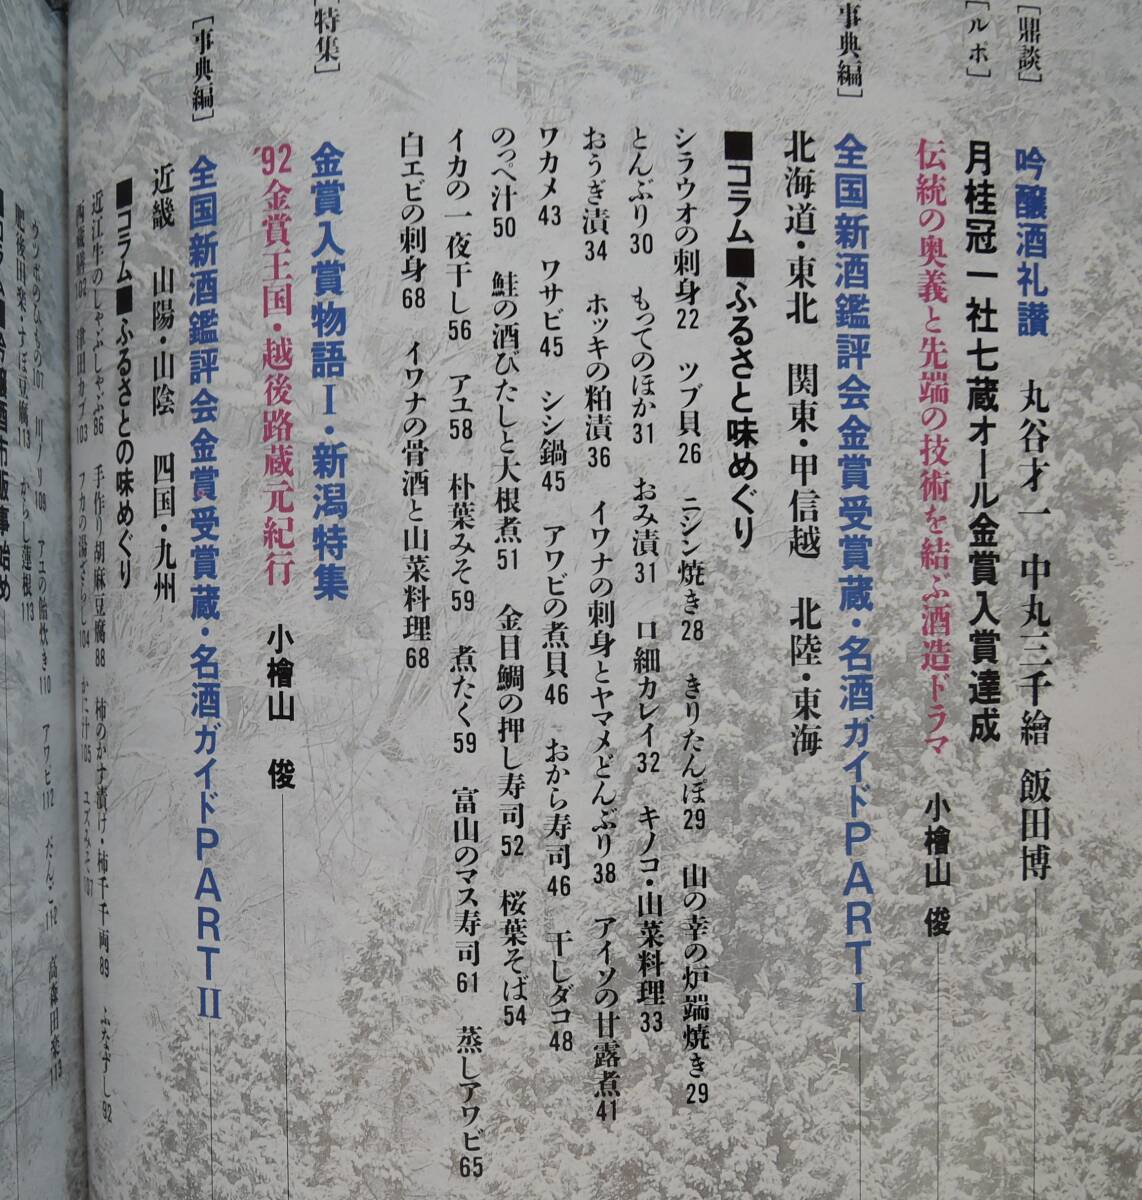 ［鼎談］ 吟醸酒礼讃 丸谷才一 中丸三千繪 飯田博
［ルポ］ 月桂冠一社七蔵オール金賞入賞達成
伝統の奥義と先端の技術を結ぶ酒造ドラマ 小檜山 俊
事典編］ 全国新酒鑑評会金賞受賞蔵・名酒ガイドPART I
北海道・東北 関東・甲信越 北陸・東海
■コラム■ふるさと味めぐり
シラウオの刺身22 ツブ貝26 ニシン焼き28 きりたんぽ29 山の幸の炉端焼き29
とんぶり30 もってのほか31 おみ漬31 口細カレイ32 キノコ・山菜料理33
おうぎ漬34 ホッキの粕漬36 イワナの刺身とヤマメどんぶり38 アイソの甘露煮41
ワカメ43 ワサビ45 シシ鍋45 アワビの煮貝46 おから寿司46 干しダコ48
のっぺ汁50 鮭の酒びたしと大根煮51 金目鯛の押し寿司52 桜葉そば54
イカの一夜干し56 アユ58 朴葉みそ59 煮たく59 富山のマス寿司61 蒸しアワビ65
白エビの刺身68 イワナの骨酒と山菜料理68
［特集］ 金賞入賞物語I・新潟特集
'92金賞王国・越後路蔵元紀行 小檜山 俊
［事典編］ 全国新酒鑑評会金賞受賞蔵・名酒ガイドPART II
近畿 山陽・山陰 四国・九州
■コラム■ふるさとの味めぐり
近江牛のしゃぶしゃぶ86 手作り胡麻豆腐88 柿のかす漬け・柿千千両89 ふなずし92
西蔵 102 津田カブ103 フカの湯ざらし104 かに汁105 ユズみそ107
ウツボのひもの107 川ノリ109 アユの 炊き110 アワビ112 だんご112 高森田楽113
肥後田楽・すぼ豆腐113 からし蓮根113
■コラム■吟醸酒市販事始め